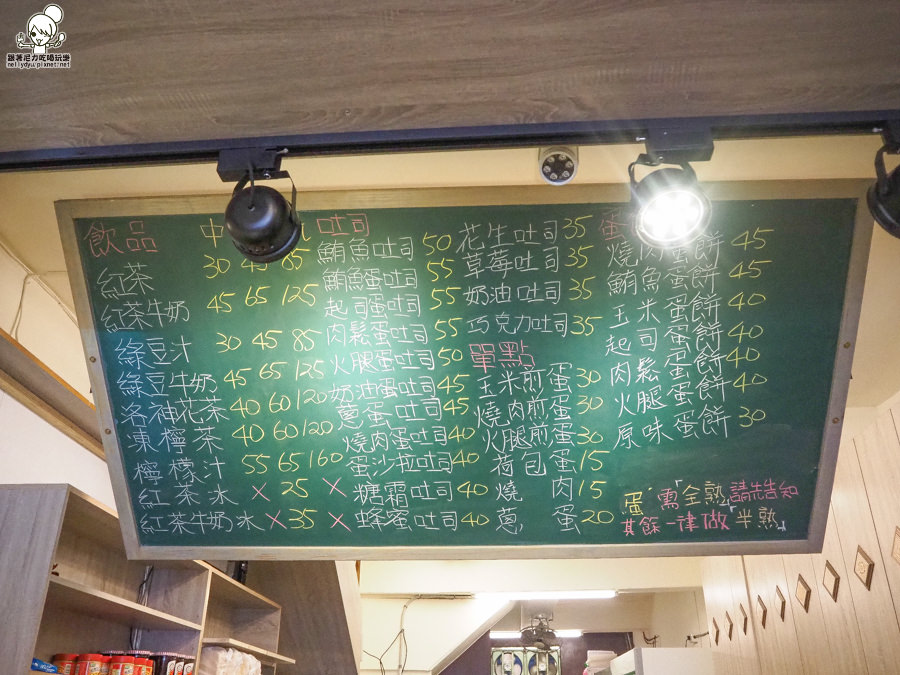 跟著尼力吃喝玩樂
nellydyu.pixnet.net
飲品 中
紅茶 30 45 85
紅茶牛奶 45 65 125
綠豆汁 30 45 85
綠豆牛奶 45 65 125
洛神花茶 40 60 120
凍檸茶 40 60 120
檸檬汁 55 65 160
紅茶冰 × 25 ×
紅茶牛奶冰 × 35 ×
吐司
鮪魚吐司 50
鮪魚蛋吐司 55
起司蛋吐司 55
肉鬆蛋吐司 55
火腿蛋吐司 50
奶油蛋吐司 45
蔥蛋吐司 45
燒肉蛋吐司 40
蛋沙拉吐司 40
糖霜吐司 40
蜂蜜吐司 40
花生吐司 35
草莓吐司 35
奶油吐司 35
巧克力吐司 35
單點
玉米煎蛋 30
燒肉煎蛋 30
火腿煎蛋 30
荷包蛋 15
燒肉 15
蔥蛋 20
蛋
燒肉蛋餅 45
鮪魚蛋餅 45
玉米蛋餅 40
起司蛋餅 40
肉鬆蛋餅 40
火腿蛋餅 40
原味蛋餅 30
蛋,需「全熟」請先告知
其餘一律做「半熟」